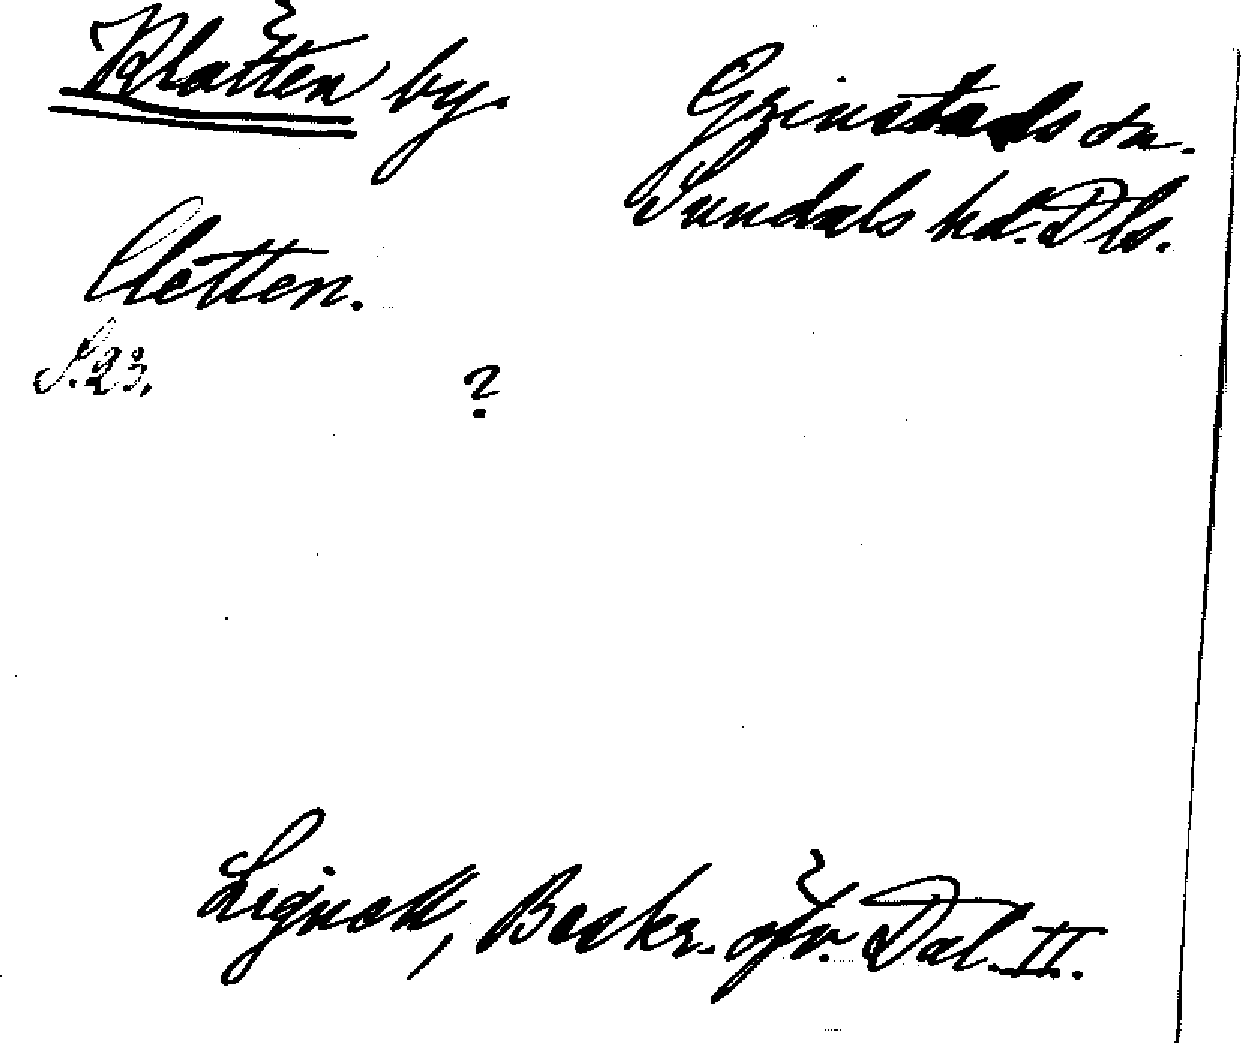 Klätten by.
Grinstads sn.
Sundals hd. Dls.
Cletten.
S. 23.
?
Lignell, Beskr. öfv. Dal. II.